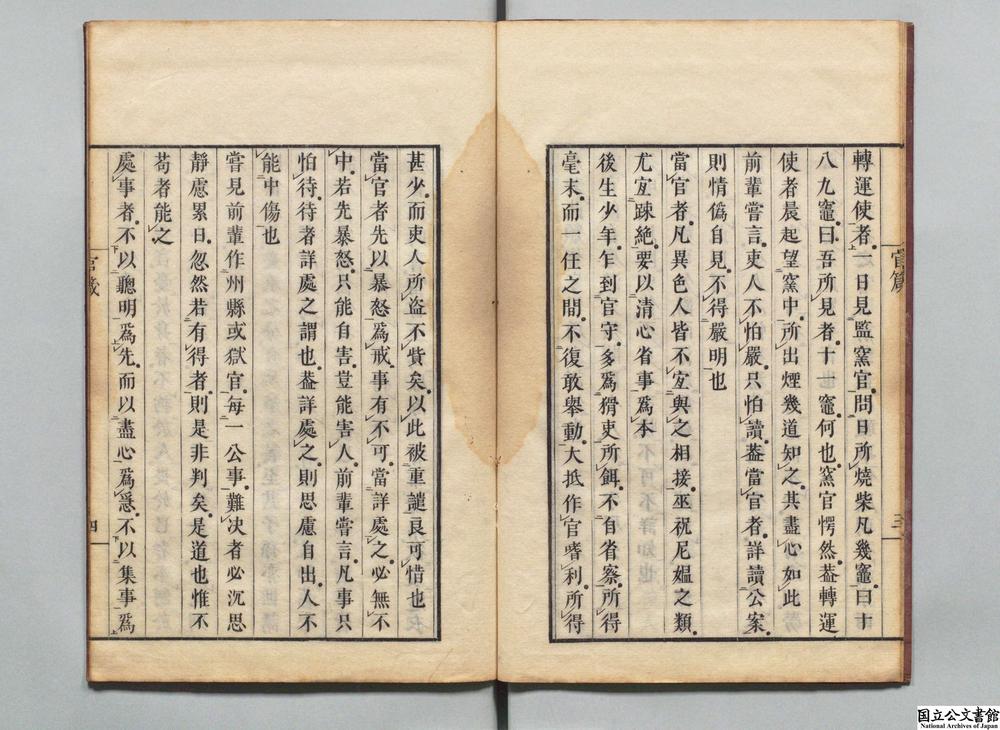 轉運使者一日見監窯官問日所燒柴凡幾竈曰十
八九竈曰吾所見者十一竈何也窯官愕然蓋轉運
使者晨起望窯中所出煙幾道知之其盡心如此
前輩嘗言吏人不怕嚴只怕讀蓋當官者詳讀公案
則情僞自見不得嚴明也
當官者凡異色人皆不宜與之相接巫祝尼媼之類
尤宜疎絶要以清心省事爲本
後生少年乍到官守多爲猾吏所餌不自省察所得
毫末而一任之間不復敢舉動大抵作官嗜利所得
官箴
三
甚少而吏人所盗不貲矣以此被重譴良可惜也
當官者先以暴怒爲戒事有不可當詳處之必無不
中若先暴怒只能自害豈能害人前輩嘗言凡事只
怕待待者詳處之謂也蓋詳處之則思慮自出人不
能中傷也
嘗見前輩作州縣或獄官每一公事難決者必沉思
靜慮累日忽然若有得者則是非判矣是道也惟不
苟者能之
處事者不以聰明爲先而以盡心爲急不以集事爲
官箴
四
国立公文書館
National Archives of Japan